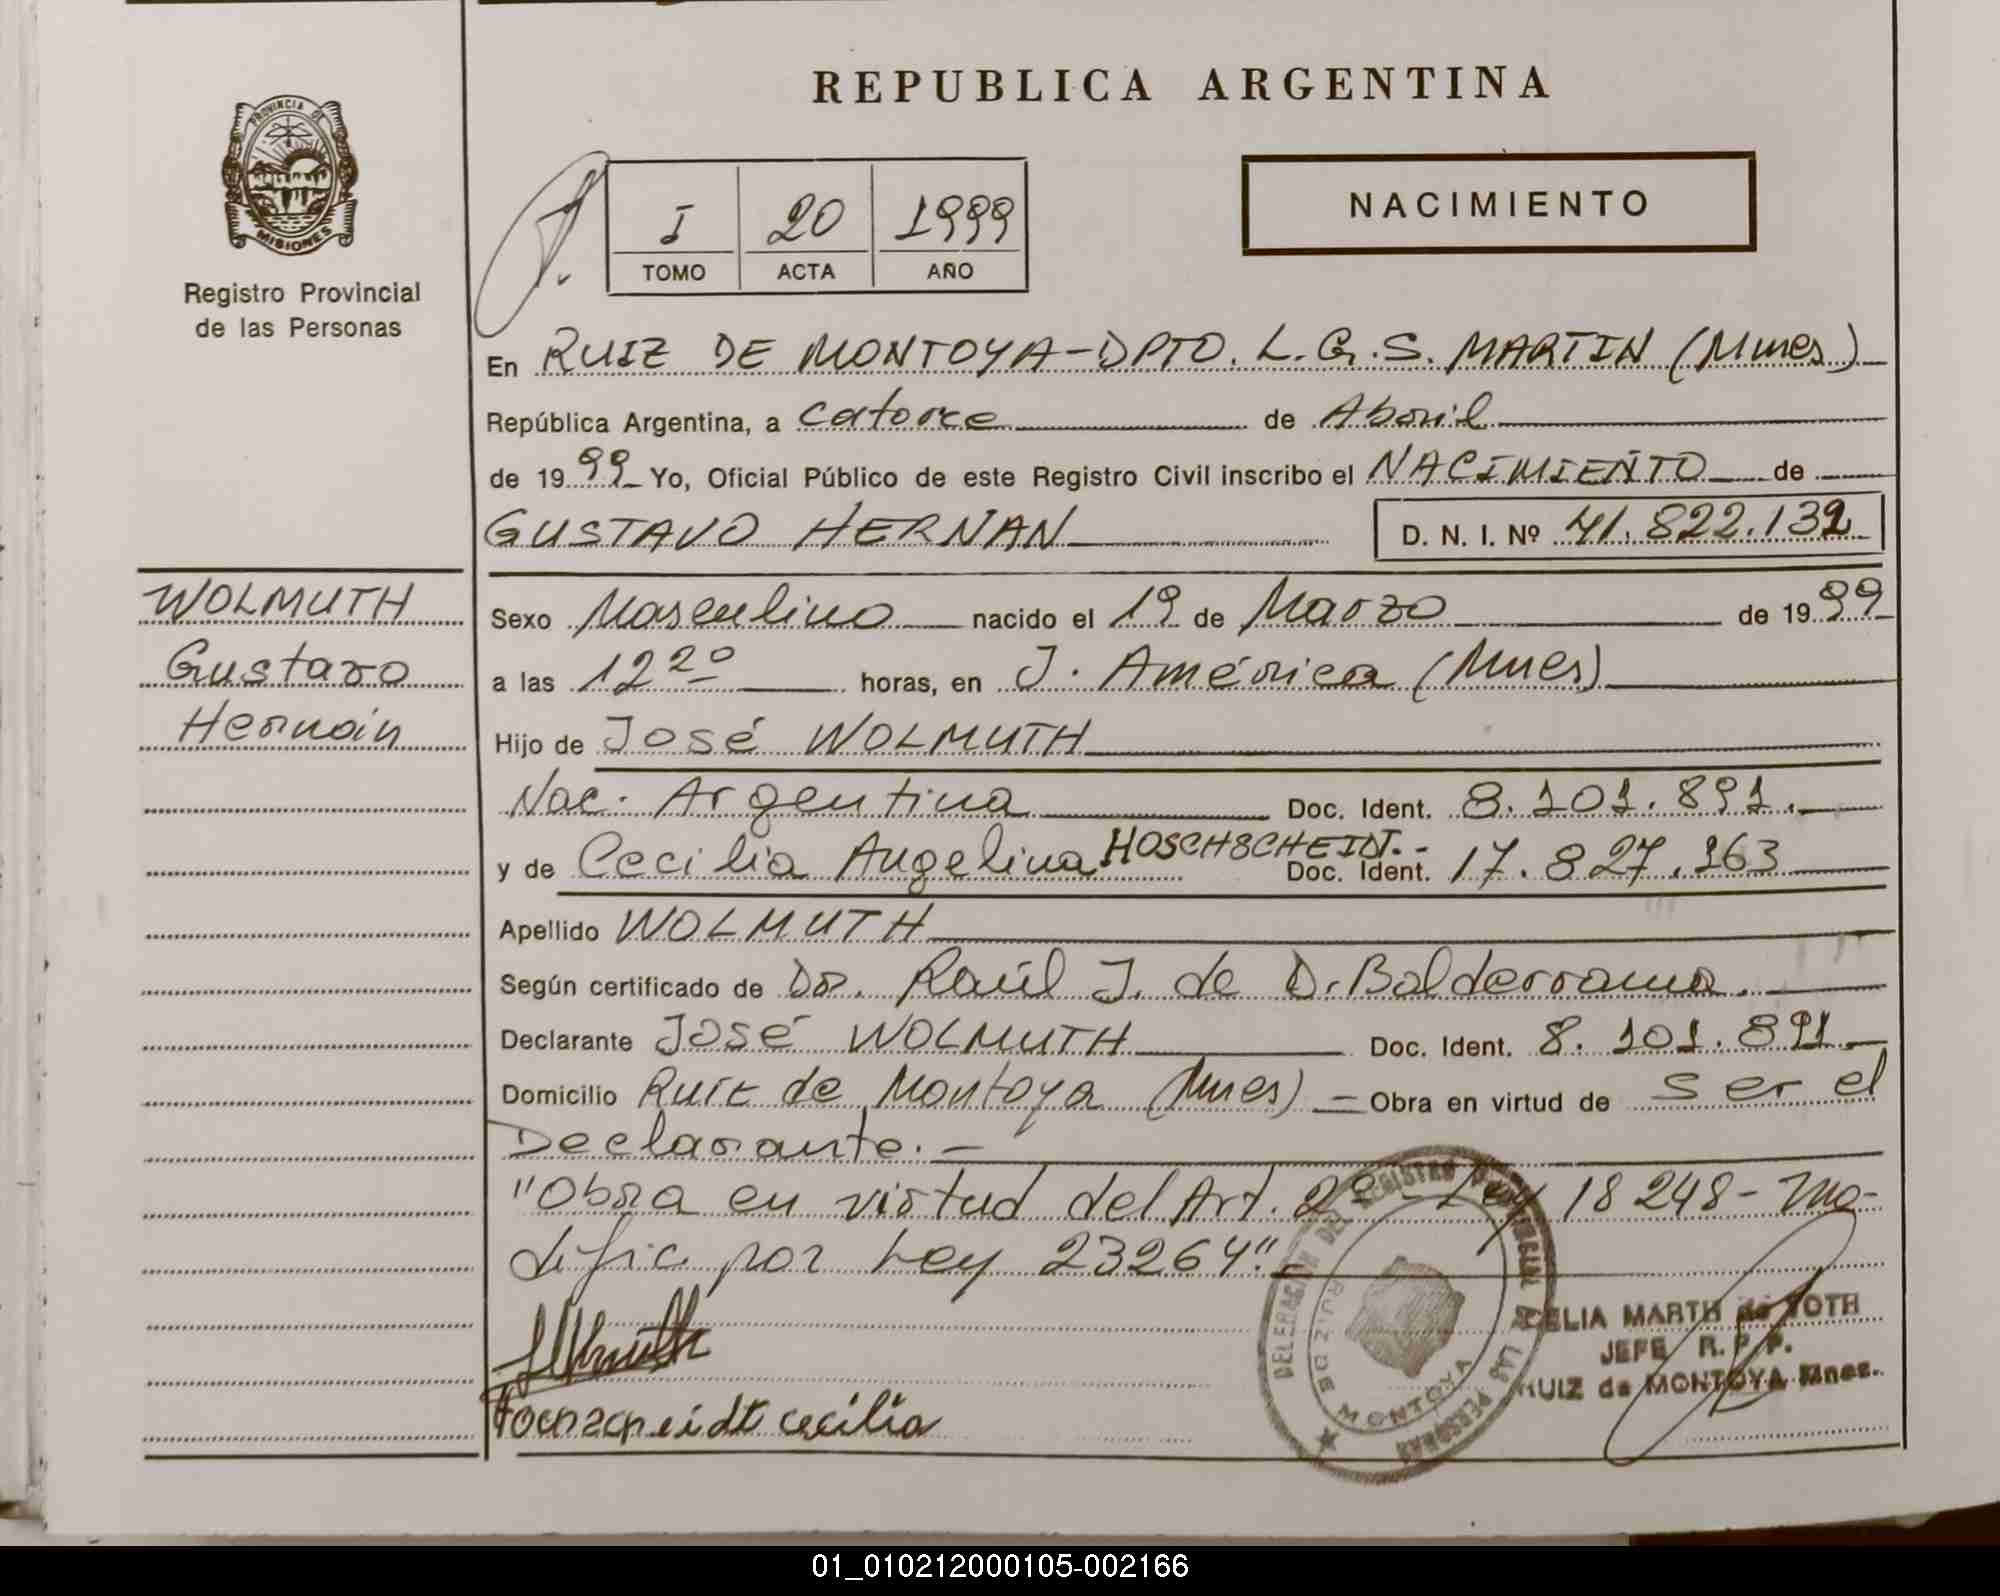 REPUBLICA ARGENTINA
PROVINCIA DE
MISIONES
Registro Provincial
de las Personas
I 20 1999
TOMO ACTA AÑO
NACIMIENTO
En RUIZ DE MONTOYA-DPTO. L.G.S. MARTIN (Mnes)
República Argentina, a catorce de Abril
de 1999 Yo, Oficial Público de este Registro Civil inscribo el NACIMIENTO de
GUSTAVO HERNAN D. N. I. Nº 41.822.132
WOLMUTH
Gustavo
Hernán
Sexo Masculino nacido el 19 de Marzo de 1999
a las 12 20 horas, en J. América (Mnes)
Hijo de José WOLMUTH
Nac. Argentina Doc. Ident. 8.101.891.
y de Cecilia Angelina HOSCHSCHEIDT.- Doc. Ident. 17.827.163
Apellido WOLMUTH
Según certificado de Dr. Raúl J. de D. Balderrama.
Declarante José WOLMUTH Doc. Ident. 8.101.891.
Domicilio Ruiz de Montoya (Mnes) Obra en virtud de ser el
Declarante.-
"Obra en virtud del Art. 2º - Ley 18248- mo-
dific por Ley 23264".
DELEGACION DEL REGISTRO PROVINCIAL DE LAS PERSONAS
RUIZ DE MONTOYA
MARTH de TOTH
JEFE R. P. P.
RUIZ de MONTOYA Mnes.
cecilia
01_010212000105-002166